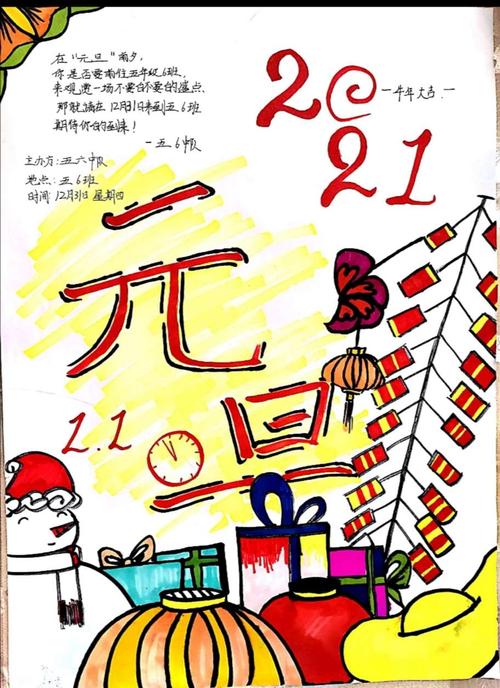 在"元旦"前夕,
你是否要前往五年级6班,
一场不要白不要白的
那就请在12月31日来到五6班
期待你的到来!
一五6中队
主办方:五六中队
地点:五6班
时间:12月31日 星期四
20
21
一牛年大吉.一
元
1.1
旦